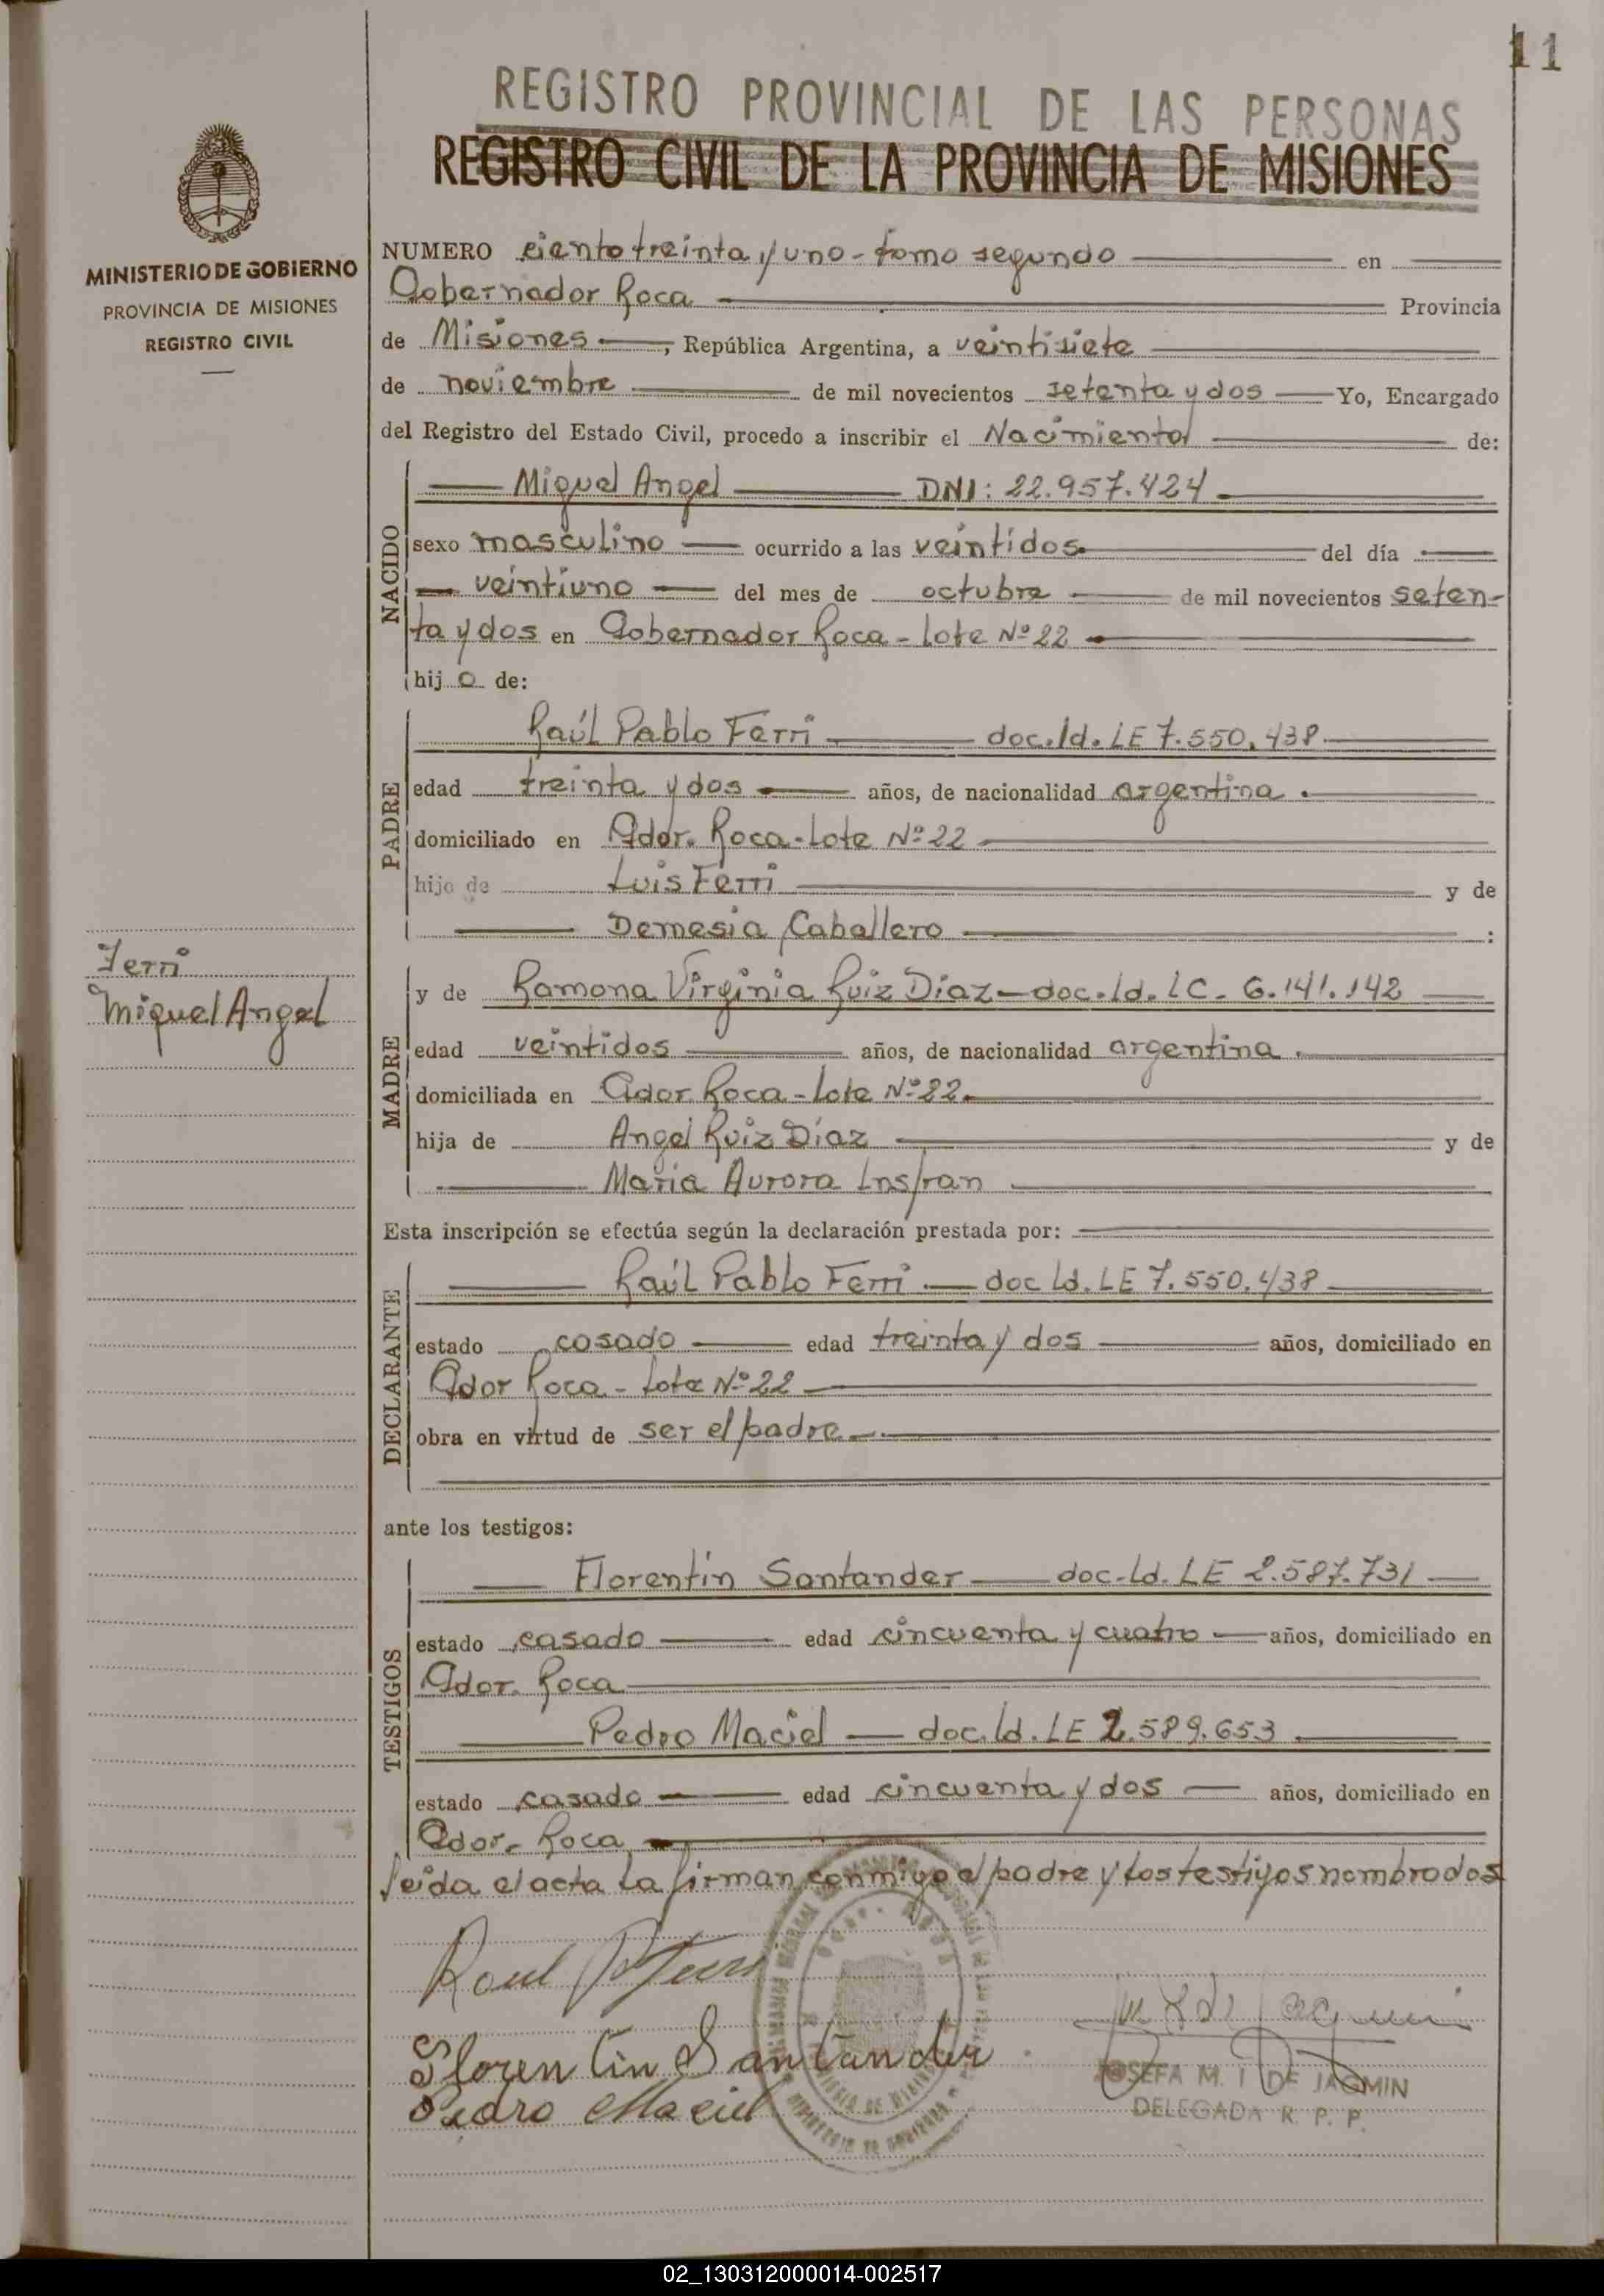 11
REGISTRO PROVINCIAL DE LAS PERSONAS
REGISTRO CIVIL DE LA PROVINCIA DE MISIONES
MINISTERIO DE GOBIERNO
PROVINCIA DE MISIONES
REGISTRO CIVIL
NUMERO ciento treinta y uno - tomo segundo en
Gobernador Roca Provincia
de Misiones, República Argentina, a veintisiete
de noviembre de mil novecientos setenta y dos Yo, Encargado
del Registro del Estado Civil, procedo a inscribir el Nacimiento de:
NACIDO
Miguel Angel DNI: 22.957.424
sexo masculino ocurrido a las veintidos del día
veintiuno del mes de octubre de mil novecientos seten-
ta y dos en Gobernador Roca - Lote Nº 22
hijo de:
PADRE
Raúl Pablo Ferri doc. Id. LE 7.550.438
edad treinta y dos años, de nacionalidad argentina.
domiciliado en Gdor. Roca - Lote Nº 22
hijo de Luis Ferri y de
Demesia Caballero :
Ferri
Miguel Angel
MADRE
y de Ramona Virginia Ruiz Díaz - doc. Id. LC. 6.141.142
edad veintidos años, de nacionalidad argentina.
domiciliada en Gdor Roca - Lote Nº 22.
hija de Angel Ruiz Díaz y de
Maria Aurora Insfran
Esta inscripción se efectúa según la declaración prestada por:
DECLARANTE
Raúl Pablo Ferri - doc Id. LE 7.550.438
estado casado edad treinta y dos años, domiciliado en
Gdor Roca - Lote Nº 22
obra en virtud de ser el padre
ante los testigos:
TESTIGOS
Florentín Santander doc. Id. LE 2.587.731
estado casado edad cincuenta y cuatro años, domiciliado en
Gdor. Roca
Pedro Maciel doc. Id. LE 2.589.653
estado casado edad cincuenta y dos años, domiciliado en
Gdor. Roca
Leída el acta la firman conmigo el padre y los testigos nombrados
Raul P Ferri
Florentin Santander
Pedro Maciel
JOSEFA M. I DE JACQMIN
DELEGADA R. P. P.
02_130312000014-002517